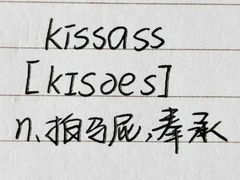 kissass
[kɪsæs]
n.拍马屁,奉承